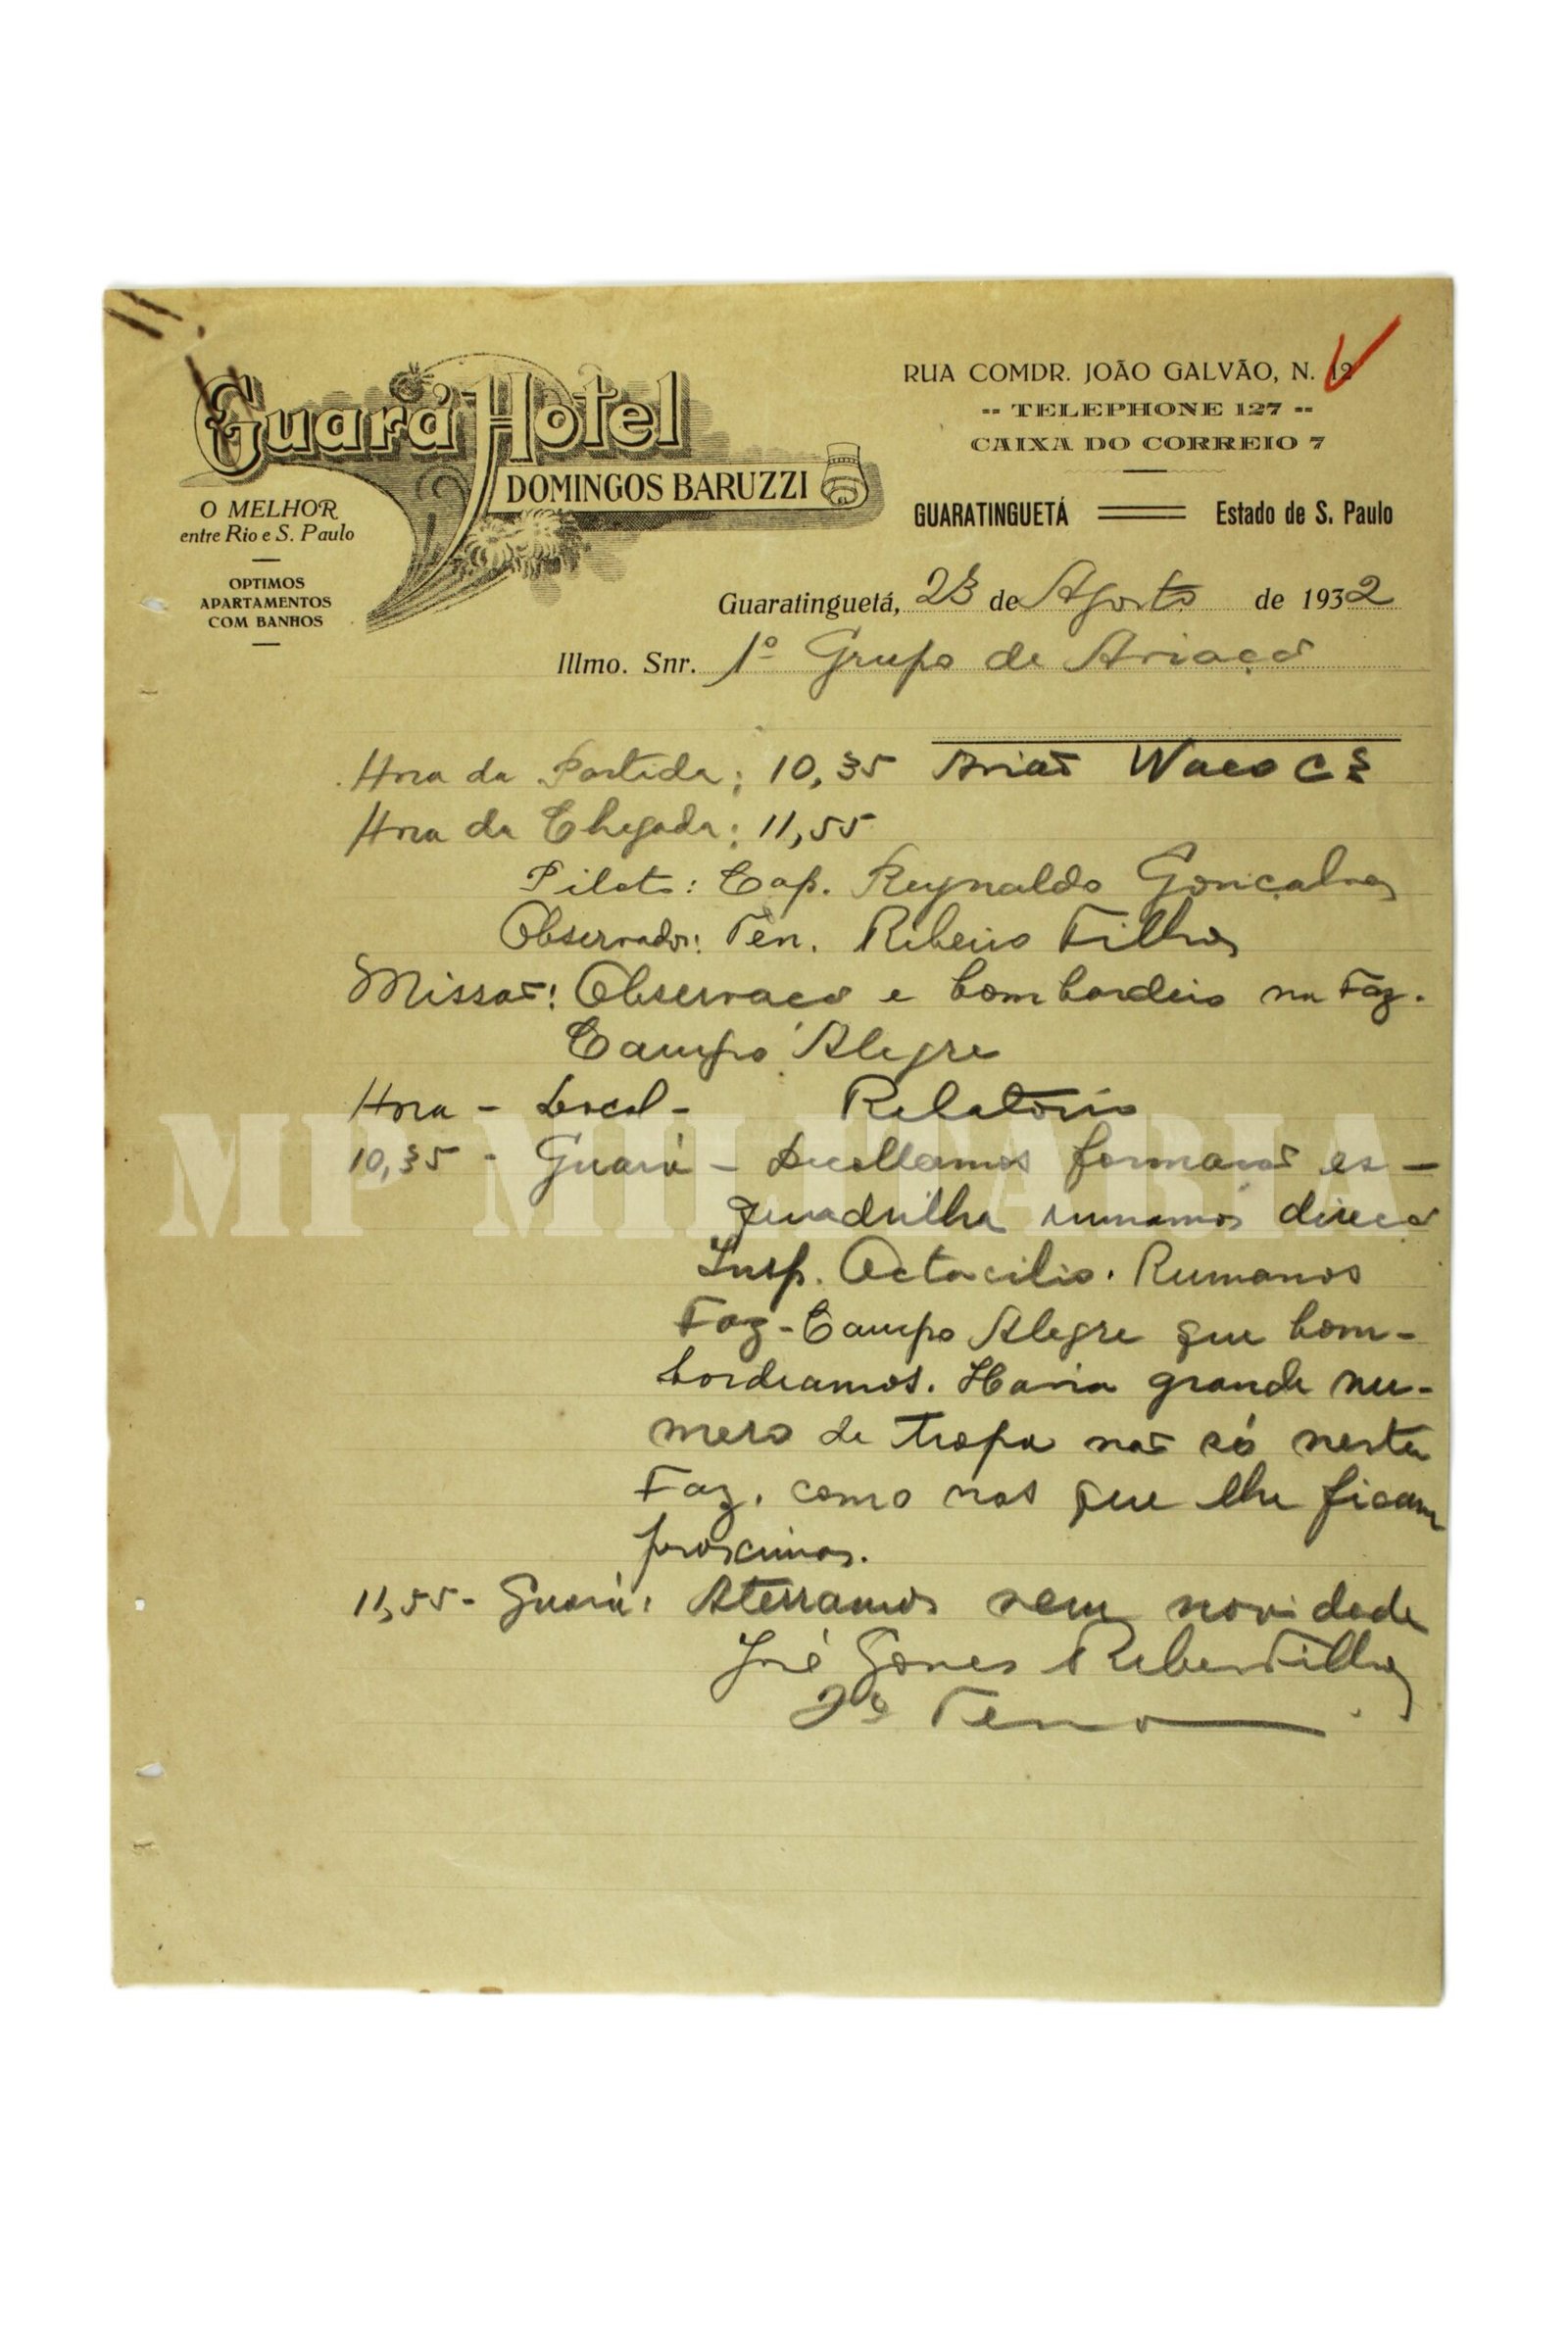 Guará Hotel
DOMINGOS BARUZZI
O MELHOR
entre Rio e S. Paulo
OPTIMOS
APARTAMENTOS
COM BANHOS
RUA COMDR. JOÃO GALVÃO, N. 12
-- TELEPHONE 127 --
CAIXA DO CORREIO 7
GUARATINGUETÁ Estado de S. Paulo
Guaratinguetá, 23 de Agosto de 1932
Illmo. Snr. 1º Grupo de Aviação
Hora da Partida: 10,35 Avião Waco C
Hora da Chegada: 11,55
Piloto: Cap. Reynaldo Gonçalves
Observador: Ten. Ribeiro Filho
Missão: Observação e bombardeio na Faz.
Campo Alegre
Hora - Local - Relatorio
10,35 - Guará - Decollamos es-
quadrilha rumamos
Insp. Octacilio. Rumamos
Faz - Campo Alegre que bom-
bordeamos. Havia grande nu-
mero de tropa não só nesta
Faz. como nas que lhe ficam
proximas.
11,55 - Guará: Aterramos sem novidade
José Gomes Ribeiro Filho
2º Ten
MP MILITARIA